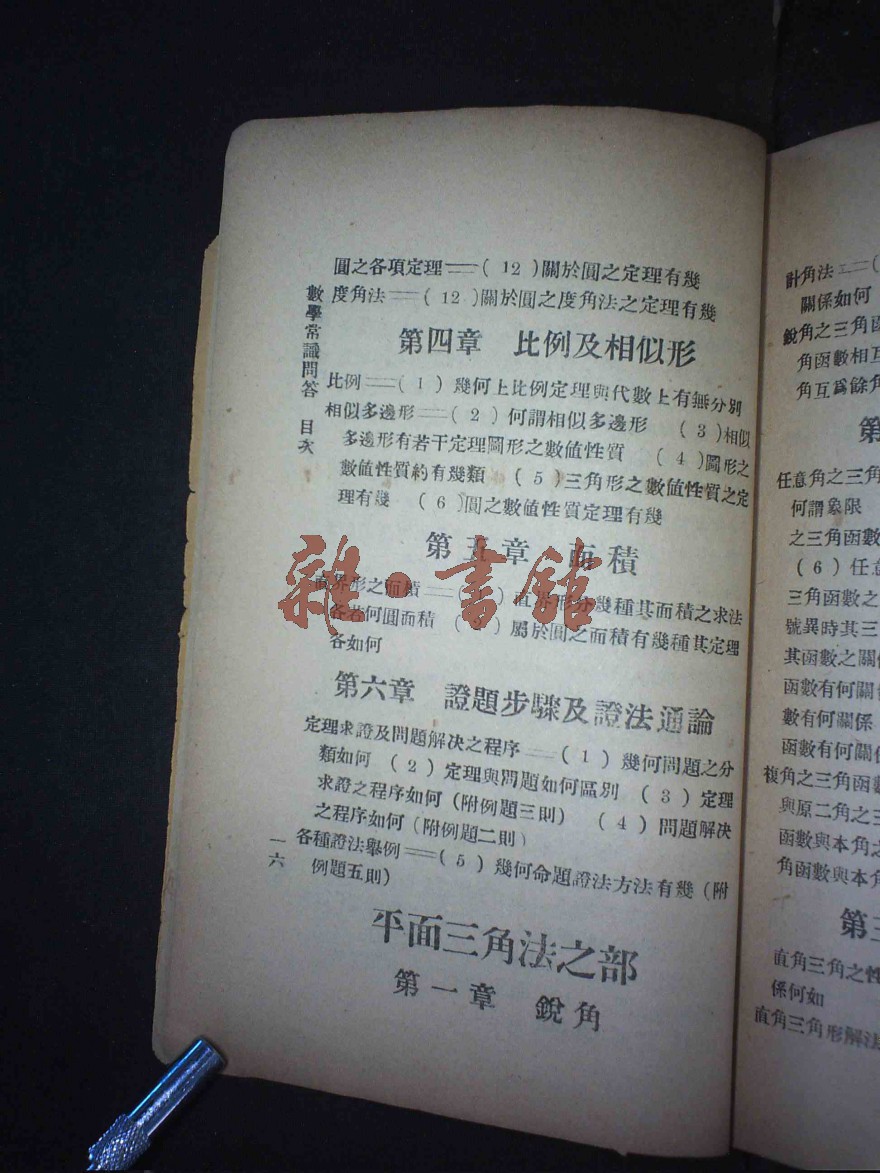 圓之各項定理——(12)關於圓之定理有幾
度角法——(12)關於圓之度角法之定理有幾
第四章 比例及相似形
比例——(1)幾何上比例定理與代數上有無分別
相似多邊形——(2)何謂相似多邊形 (3)相似
多邊形有若干定理圖形之數値性質 (4)圖形之
數値性質約有幾類 (5)三角形之數値性質之定
理有幾 (6)圓之數値性質定理有幾
第五章 面積
直界形之面積——( )直界形分幾種其面積之求法
各若何圓面積 ( )屬於圓之面積有幾種其定理
各如何
第六章 證題步驟及證法通論
定理求證及問題解决之程序——(1)幾何問題之分
類如何 (2)定理與問題如何區別 (3)定理
求證之程序如何(附例題三則) (4)問題解决
之程序如何(附例題二則)
各種證法舉例——(5)幾何命題證法方法有幾(附
例題五則)
平面三角法之部
第一章 銳角
數學常識問答 目次
一六
雜·書館
計角法——(
關係如何
銳角之三角函
角函數相互
角互爲餘角
第
任意角之三角
何謂象限
之三角函數
(6)任意
三角函數之
號異時其三
其函數之關係
函數有何關
數有何關係
函數有何關係
複角之三角函數
與原二角之三
函數與本角之
角函數與本角
第三
直角三角之性
係何如
直角三角形解法